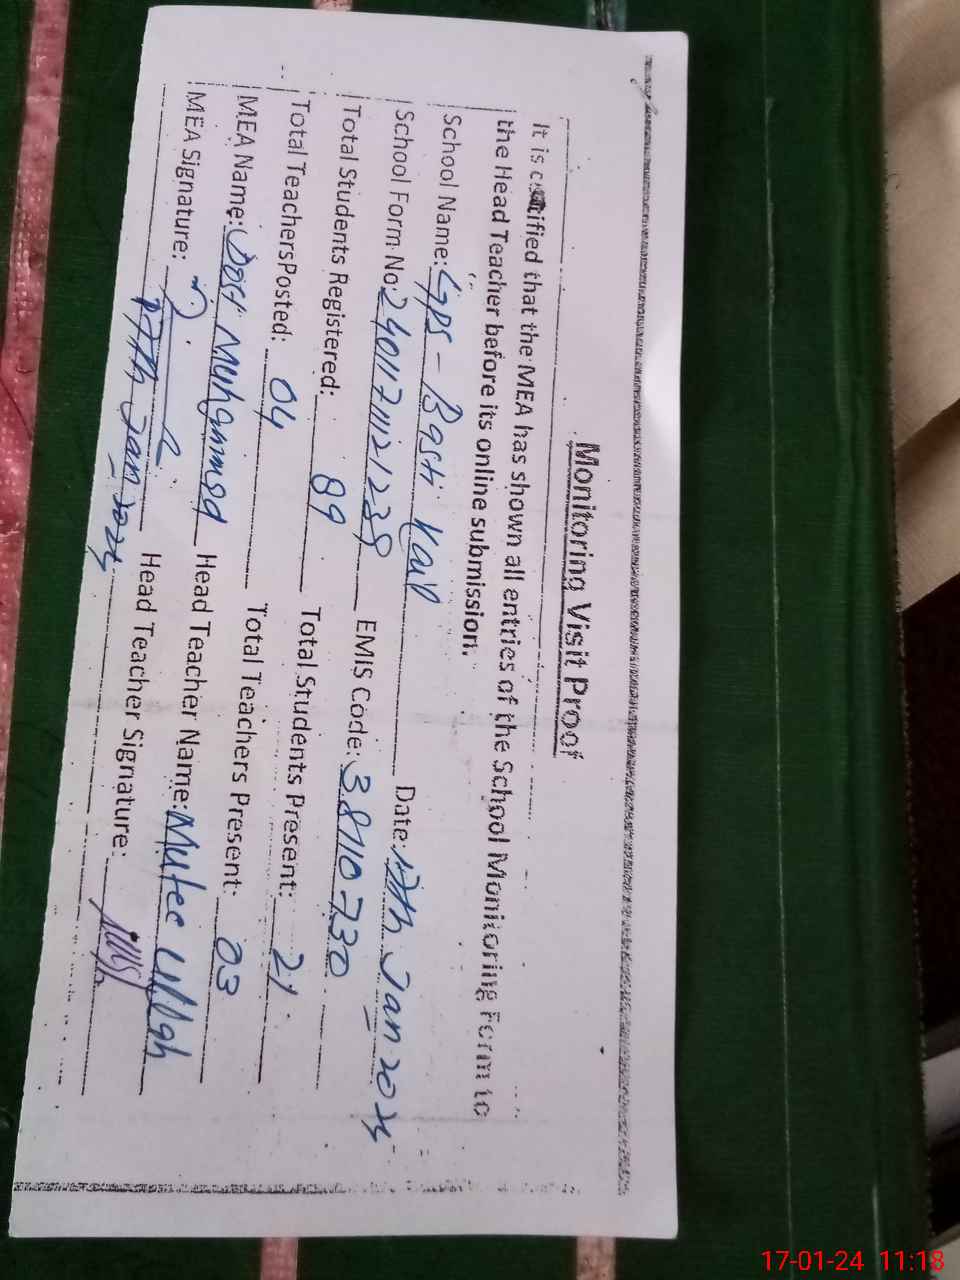 Monitoring Visit Proof
It is certified that the MEA has shown all entries of the School Monitoring Form to
the Head Teacher before its online submission.
School Name: GPS - Basti Date: 17th Jan 2024
School Form No: EMIS Code: 38110730
Total Students Registered: 89 Total Students Present: 21
Total Teachers Posted: 04 Total Teachers Present: 03
MEA Name: Dost Muhammad Head Teacher Name: Mutee Ullah
MEA Signature: Head Teacher Signature:
17th Jan 2024
17-01-24 11:18